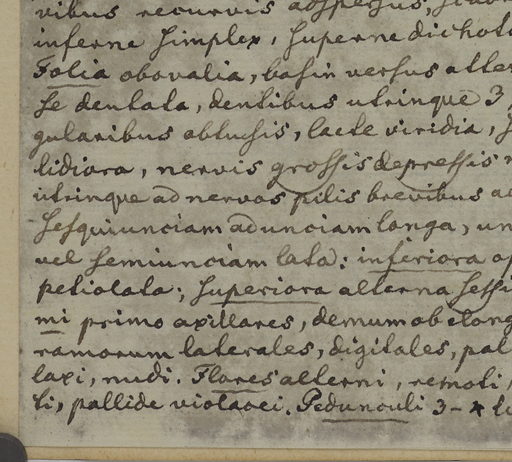 vibus recurvis adspersus,
inferne simplex, superne dichoto
Folia obovalia, basin versus atte
se dentata, dentibus utrinque 3,
gularibus obtusis, laete viridia, s
lidiora, nervis grossis depressis
utrinque ad nervos pilis brevibus a
sesquiunciam ad unciam longa, un
vel semiunciam lata: inferiora op
petiolata; superiora alterna sessi
mi primo axillares, demum ob elong
ramorum laterales, digitales, pal
laxi, nudi. Flores alterni, remoti,
ti, pallide violacei. Pedunculi 3-4 li